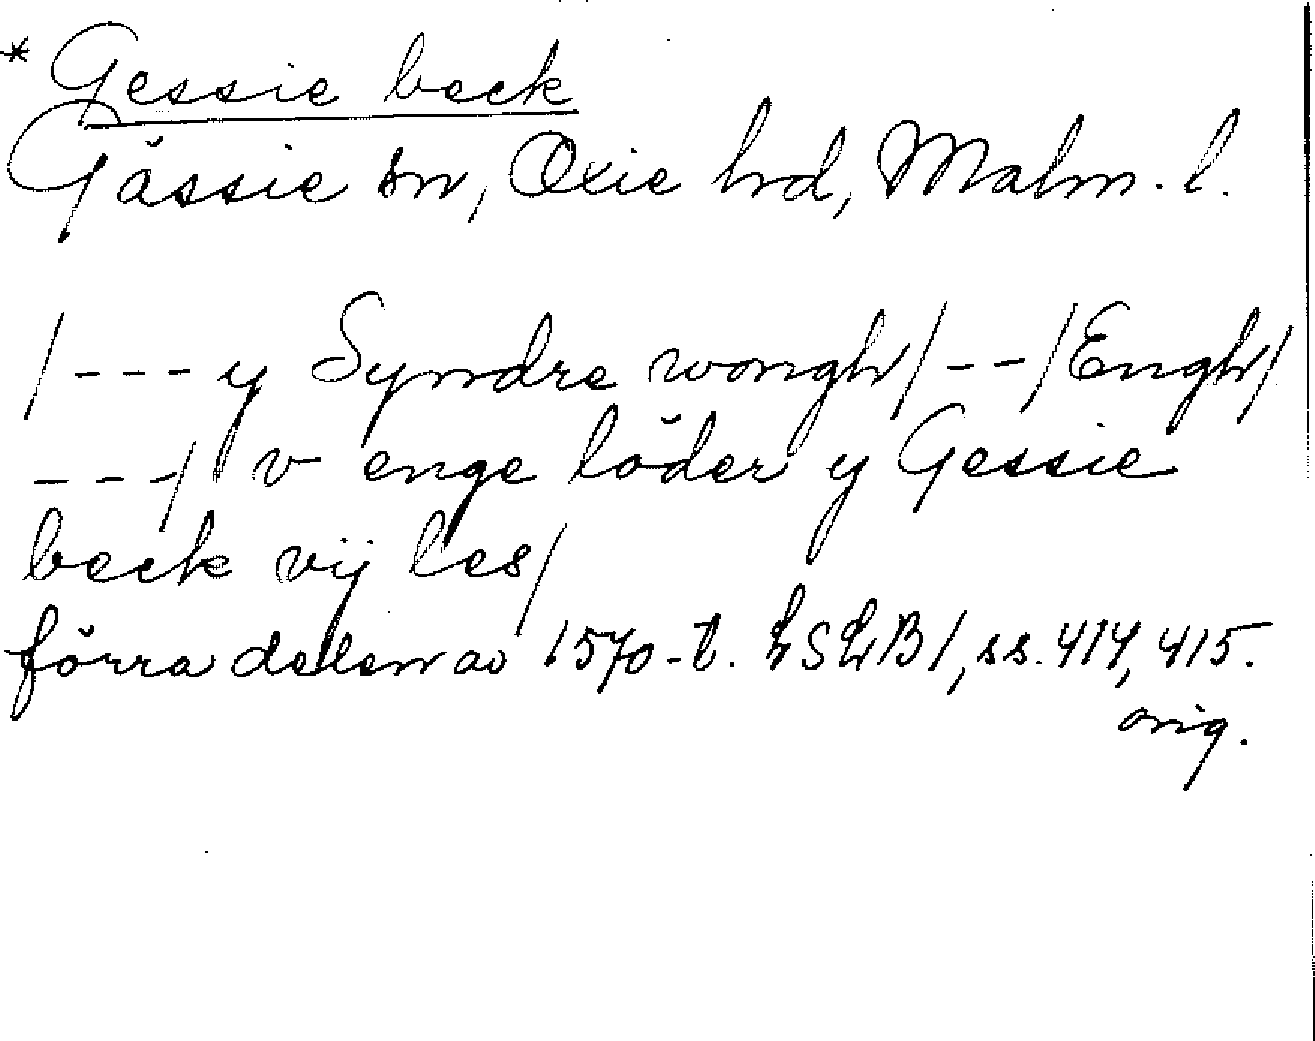 * Gessie beck
Gässie sn, Oxie hrd, Malm. l.
/--- y Syndre wongh/--/Engh/
---/ v enge löder y Gessie
beck vij les/
förra delen av 1570-t. LSLB1, ss. 414, 415.
orig.